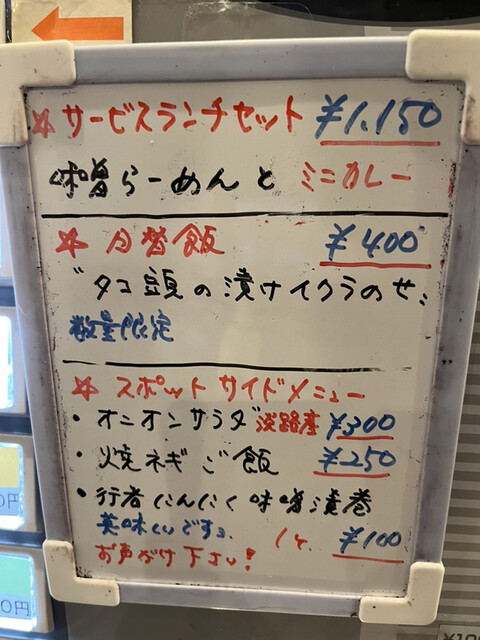 ☆サービスランチセット ¥1.150
味噌らーめんと ミニカレー
☆月替飯 ¥400
"タコ頭の漬けイクラのせ、
数量限定
☆スポットサイドメニュー
・オニオンサラダ 淡路産 ¥300
・焼ネギご飯 ¥250
・行者にんにく味噌漬巻
美味しいです。
お声がけ下さい! 1ヶ. ¥100
0円
0円